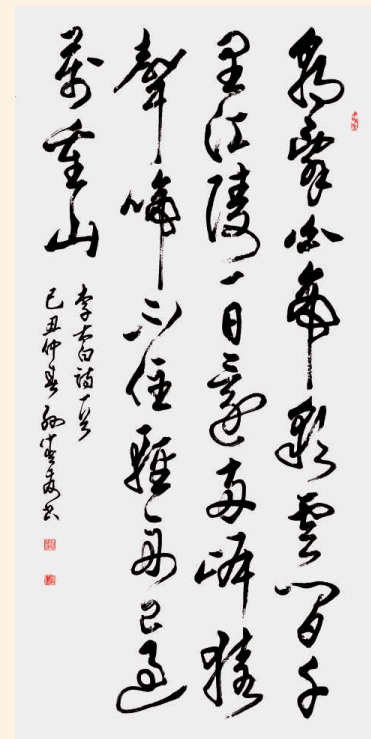 朝辭白帝彩雲間千
里江陵一日還两岸猿
聲啼不住輕舟已過
萬重山
李太白詩一首
己丑仲春書